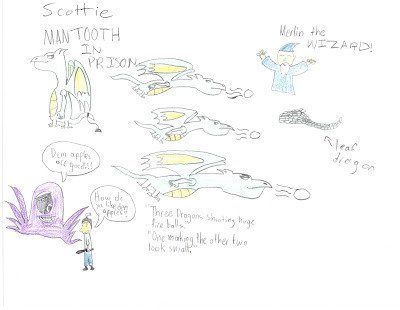 Scottie
MANTOOTH
IN
PRISON
Merlin the
WIZARD!
leaf
dragon
Dem apples
are good!!
How do
ya like dem
apples?
"Three Dragons shooting huge
fire balls.
"One making the other two
look small."